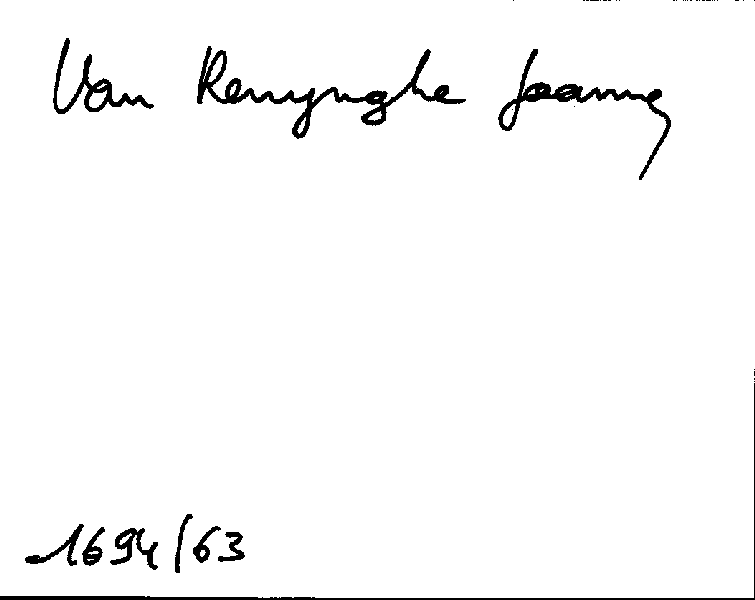 Van Renynghe Joanne
1694/63